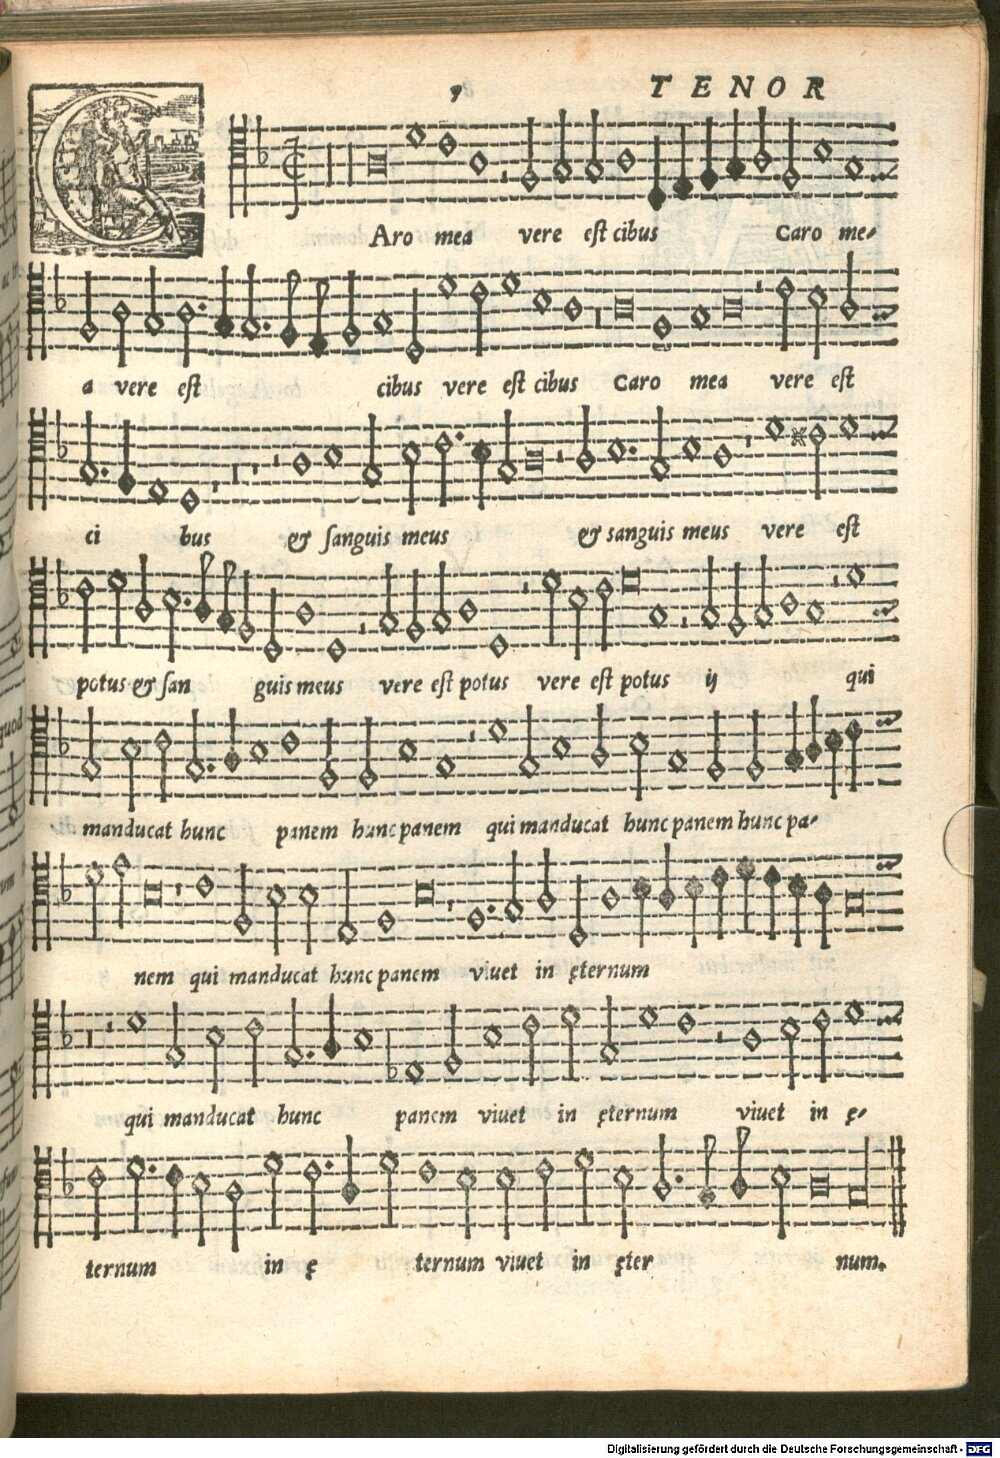 9 TENOR
CAro mea vere est cibus Caro me-
a vere est cibus vere est cibus Caro mea vere est
ci bus & sanguis meus & sanguis meus vere est
potus & san guis meus vere est potus vere est potus ij qui
manducat hunc panem hunc panem qui manducat hunc panem hunc pa-
nem qui manducat hunc panem viuet in ęternum
qui manducat hunc panem viuet in ęternum viuet in ę-
ternum in ę ternum viuet in ęter num.
Digitalisierung gefördert durch die Deutsche Forschungsgemeinschaft - DFG